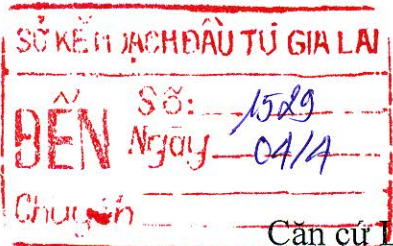 SỞ KẾ HOẠCH ĐẦU TƯ GIA LAI
ĐẾN
Số: 1529
Ngày 04/4
Chuyển
Căn cứ